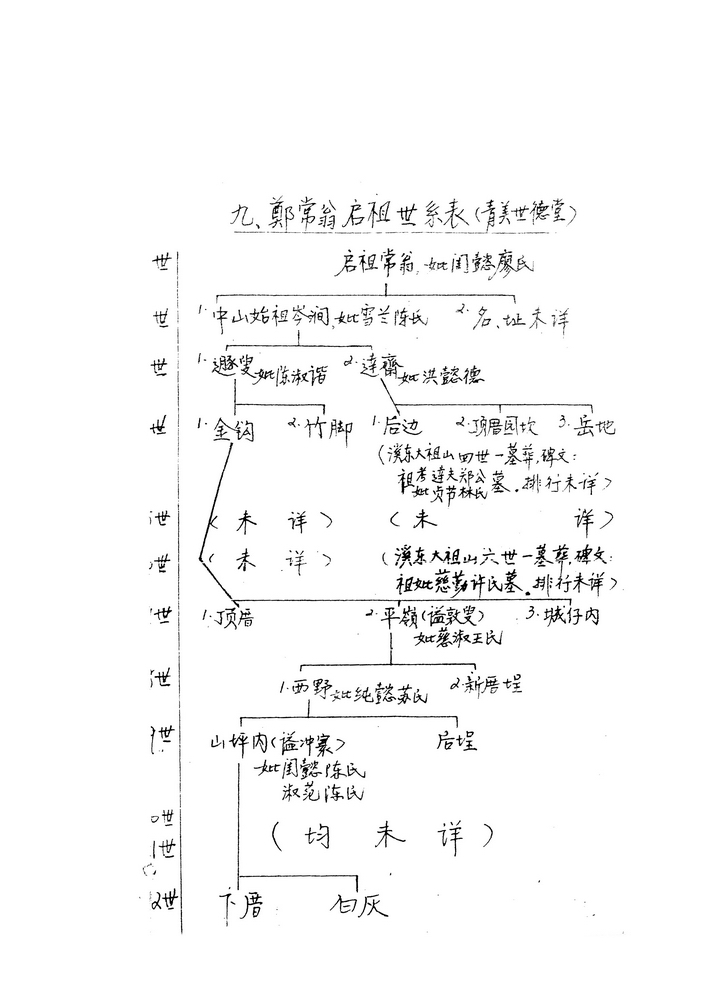 九、鄭常翁启祖世系表(青美世德堂)
世 启祖常翁,妣闺懿廖氏
世 1.中山始祖岑涧,妣雪兰陈氏 2.名、址未详
世 1.遯叟妣陈淑谐 2.達齋妣洪懿德
世 1.金钩 2.竹脚 1.后边 2.顶厝园坎 3.岳地
(溪东大祖山四世一墓葬,碑文:
祖考達夫郑公
妣贞节林氏墓。排行未详)
世 (未详) (未 详)
世 (未详) (溪东大祖山六世一墓葬,碑文:
祖妣慈勤许氏墓。排行未详)
世 1.顶厝 2.平嶺(谥敦叟) 3.城仔内
妣慈淑王氏
世 1.西野妣纯懿苏氏 2.新厝埕
世 山坪内(谥冲寰) 后埕
妣闺懿陈氏
淑范陈氏
0世
(均未详)
1世
2世 下厝 白灰